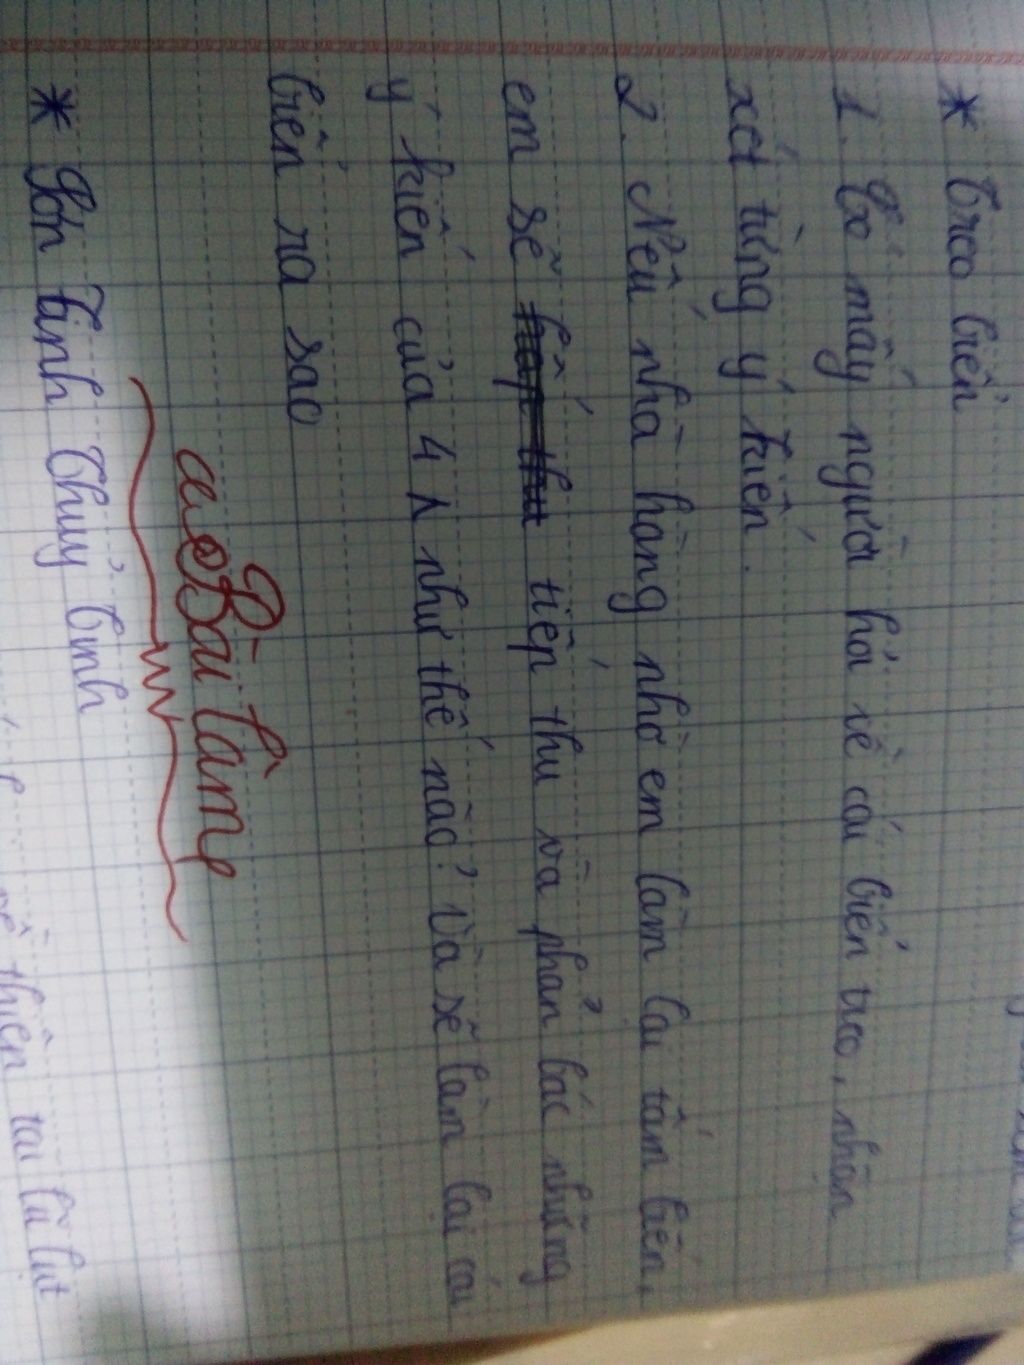 * Treo biển
1. Có mấy người hỏi về cái biển treo, nhận
xét từng ý kiến.
2. Nếu nhà hàng nhờ em làm lại tấm biển,
em sẽ tiếp thu và phản bác những
ý kiến của 4 n như thế nào? Và sẽ làm lại cái
biển ra sao
Bài làm
* Sơn Tinh Thủy Tinh
thiên tai lũ lụt